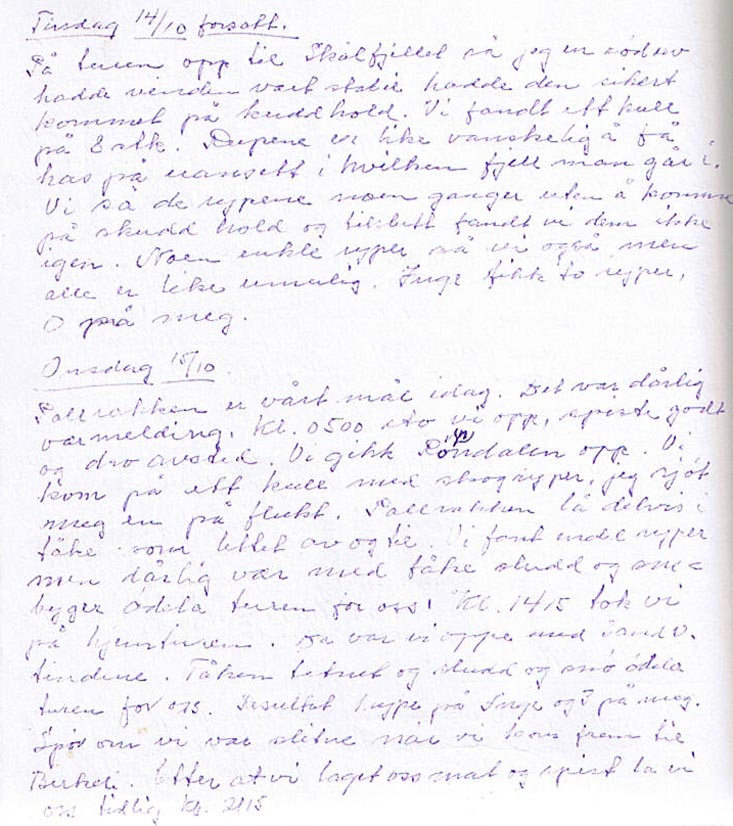 Tirsdag 14/10 forsatt.
På turen opp til Skålfjellet så jeg en rødrev
hadde vinden vært stille hadde den sikert
kommet på skuddhold. Vi fandt ett kull
på 8 stk. Rypene er like vanskelig å få
has på uansett i hvilken fjell man går i.
Vi så de rypene noen ganger uten å komme
på skudd hold og tilslutt fandt vi dem ikke
igen. Noen enkle ryper så vi også men
alle er like umulig. Inge fikk to ryper,
0 på meg.
Onsdag 15/10.
er vårt mål idag. Det var dårlig
værmelding. Kl. 0500 sto vi opp, spiste godt
og dro avsted. Vi gikk opp. Vi
kom på ett kull med skogryper, jeg skjøt
meg en på flukt. lå delvis i
tåke som lettet av og til. Vi fant endel ryper
men dårlig vær med tåke sludd og snø=
byger ødela turen for oss! Kl. 1415 tok vi
på hjemturen. Da var vi oppe med
tindene. Tåken tetnet og sludd og snø ødela
turen for oss. Resultat 1 rype på Inge og på meg.
Spør om vi var slitne når vi kom frem til
Etter at vi laget oss mat og spist la vi
oss tidlig Kl. 2115